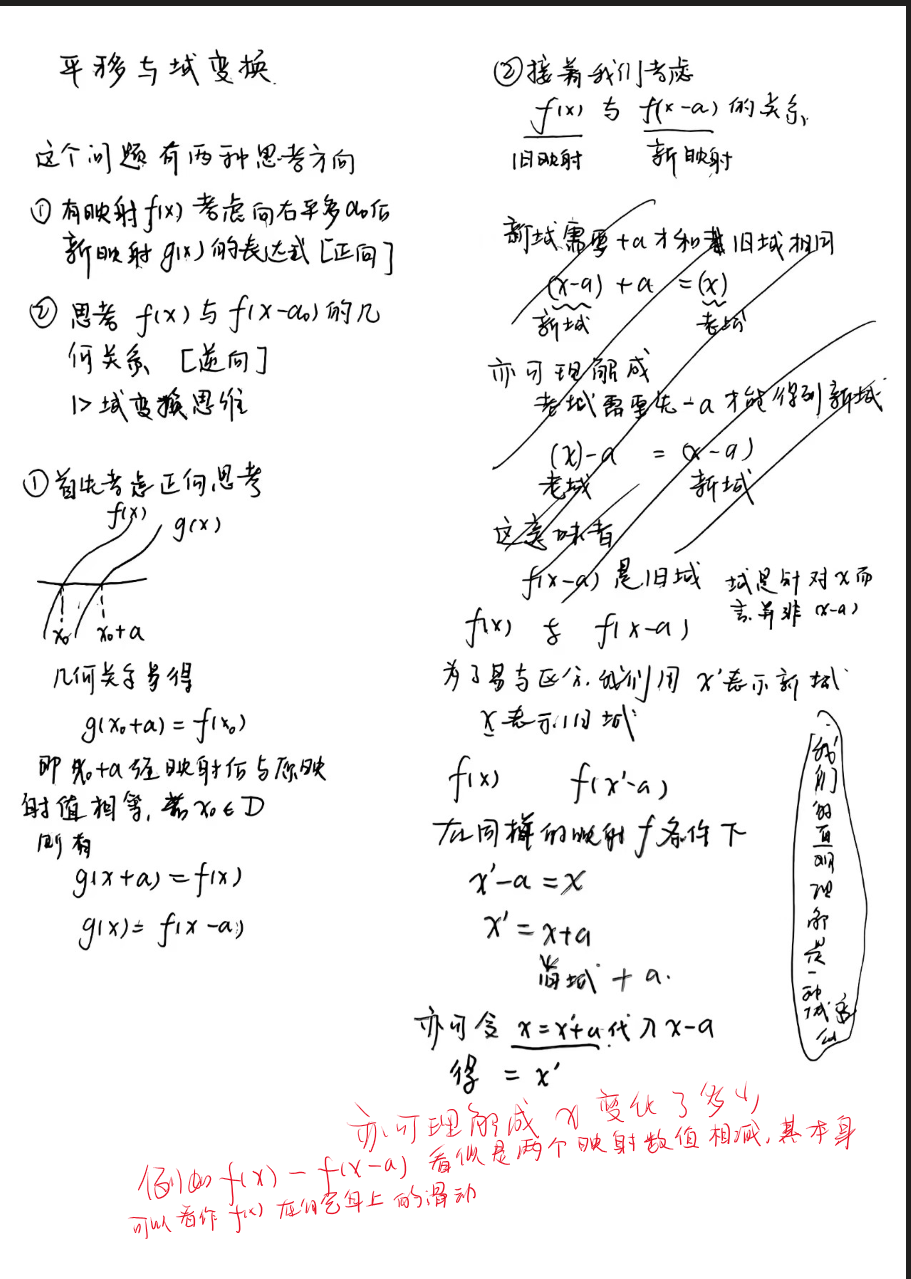 平移与域变换
这个问题有两种思考方向
① 有映射f(x) 考虑向右平移a₀后
新映射g(x)的表达式[正向]
② 思考 f(x)与f(x-a₀)的几
何关系 [逆向]
1> 域变换思维
① 首先考虑正向思考
f(x)
g(x)
x₀ x₀+a
几何关系易得
g(x₀+a)=f(x₀)
即 x₀+a经映射后与原映
射值相等,若x₀∈D
则有
g(x+a)=f(x)
g(x)=f(x-a)
② 接着我们考虑
f(x) 与 f(x-a)的关系
旧映射 新映射
新域需要+a才和旧域相同
(x-a)+a=(x)
新域 老域
亦可理解成
老域需要先-a才能得到新域
(x)-a = (x-a)
老域 新域
这意味着
f(x-a)是旧域
域是针对x而
言,并非(x-a)
f(x) 与 f(x-a)
为了易与区分,我们用x'表示新域
x表示旧域
f(x) f(x'-a)
在同样的映射f条件下
x'-a=x
x'=x+a
旧域+a.
亦可令 x=x'+a代入x-a
得 = x'
我们的直观理解是一种域
亦可理解成 x变化了多少
例如 f(x)-f(x-a)看似是两个映射数值相减,其本身
可以看作f(x)在 上的滑动